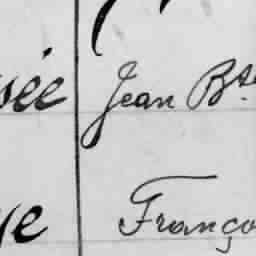 sée Jean Bte
ye Franço